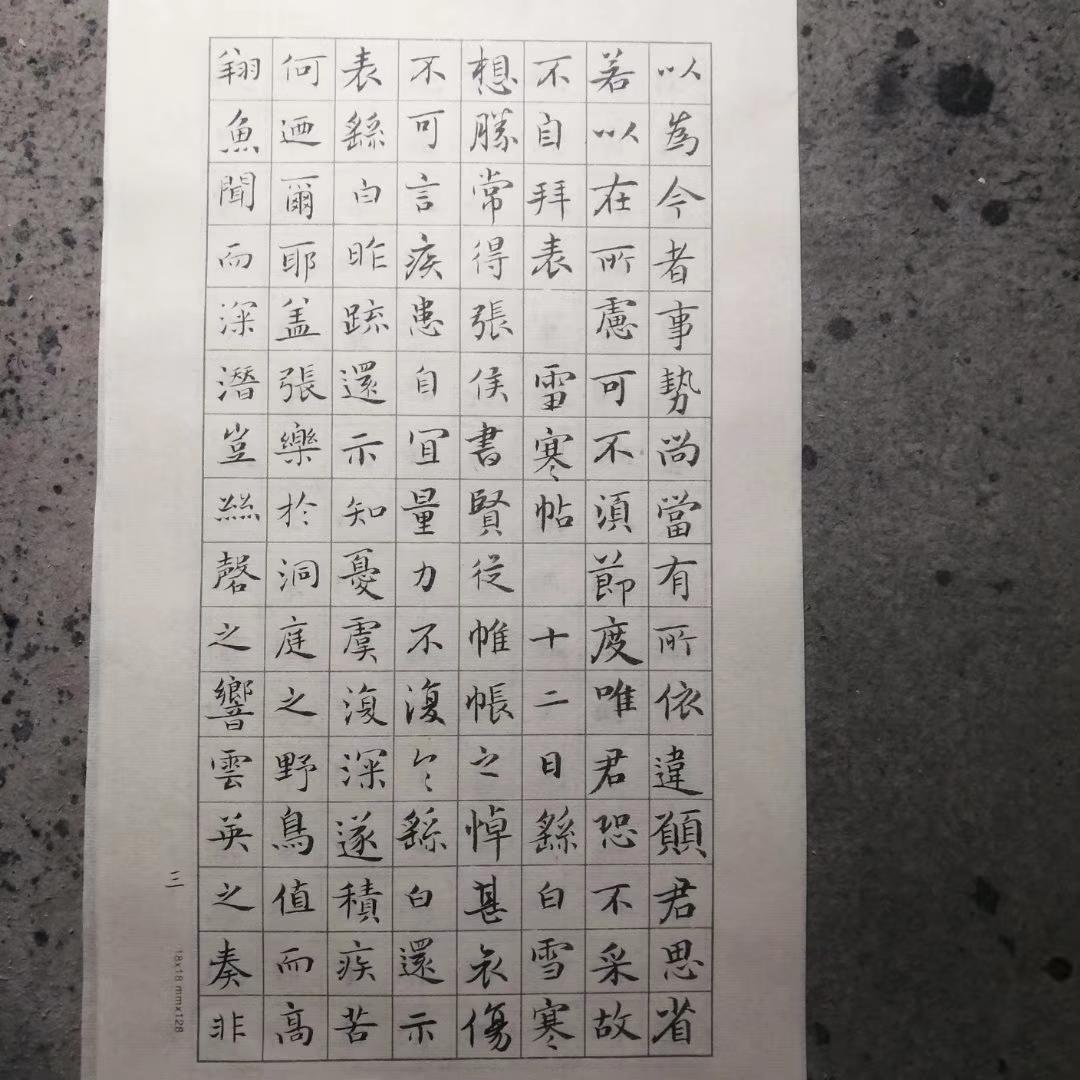 以為今者事勢尚當有所依違願君思省
若以在所慮可不須節度唯君恐不采故
不自拜表 雪寒帖 十二日繇白雪寒
想勝常得張侯書賢從帷帳之悼甚哀傷
不可言疾患自宜量力不復繇白還示
表繇白昨疏還示知憂虞復深遂積疾苦
何迺爾耶盖張樂於洞庭之野鳥值而高
翔魚聞而深潛豈絲磬之響雲英之奏非
三
18x18 mmx128